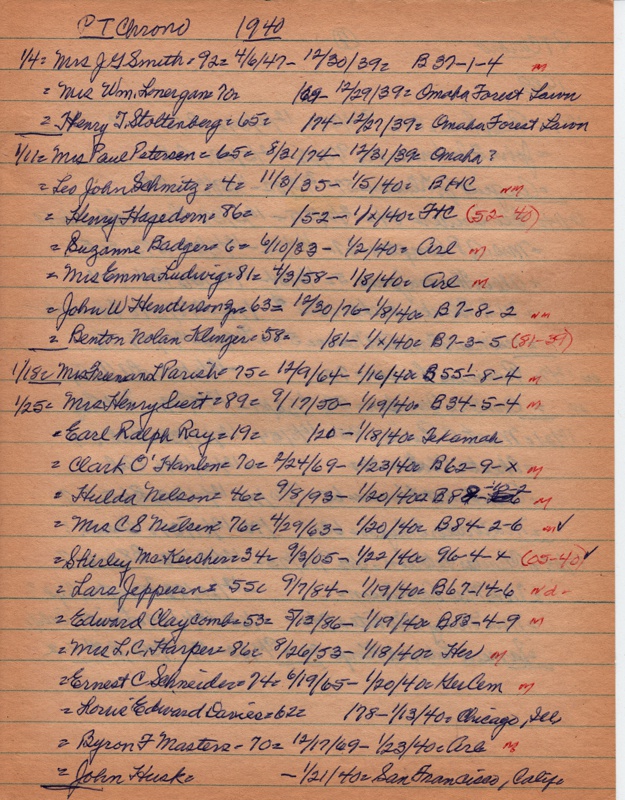 P T Chrono 1940
1/4 = Mrs J G Smith = 92 = 4/6/47 - 12/30/39 = B 37-1-4 m
= Mrs Wm. Lonergan = 70 = /69 - 12/29/39 = Omaha Forest Lawn
= Henry T. Stoltenberg = 65 = /74 - 12/27/39 = Omaha Forest Lawn
1/11 = Mrs Paul Petersen = 65 = 8/31/74 - 12/31/39 = Omaha?
= Leo John Schmitz = 4 = 11/3/35 - 1/5/40 = B HC nm
= Henry Hagedorn = 86 = /52 - 1/x/40 = FHC (52-40)
= Suzanne Badger = 6 = 6/10/33 - 1/2/40 = Arl m
= Mrs Emma Ludwig = 81 = 4/3/58 - 1/8/40 = Arl m
= John W Henderson = 63 = 12/30/76 - 1/8/40 = B 7-8-2 nm
= Benton Nolan Klinger = 58 = /81 - 1/x/40 = B 7-3-5 (81-39)
1/18 = Mrs L Parish = 75 = 12/9/64 - 1/16/40 = B 55-8-4 m
1/25 = Mrs Henry Siert = 89 = 9/17/50 - 1/19/40 = B 34-5-4 m
= Earl Ralph Ray = 19 = /20 - 1/18/40 = Tekamah
= Clark O'Hanlon = 70 = 2/24/69 - 1/23/40 = B 62-9-x m
= Hulda Nelson = 46 = 9/8/93 - 1/20/40 = m
= Mrs C S Nielsen = 76 = 4/29/63 - 1/20/40 = B 84-2-6 m✓
= Shirley McKercher = 34 = 9/3/05 - 1/22/40 = 96-4-4 (05-40)✓
= Lars Jeppesen = 55 = 9/7/84 - 1/19/40 = B 67-14-6 nd-
= Edward Claycomb = 53 = 5/13/86 - 1/19/40 = B 83-4-9 m
= Mrs L. C. Harper = 86 = 8/26/53 - 1/18/40 = Her m
= Ernest C Schneider = 74 = 6/19/65 - 1/20/40 = Ger Cem m
= Edward Davies = 62 = /78 - 1/13/40 = Chicago, Ill
= Byron F Masters - 70 = 12/17/69 - 1/23/40 = Arl m
= John Husk = - 1/21/40 = San Francisco, Calif